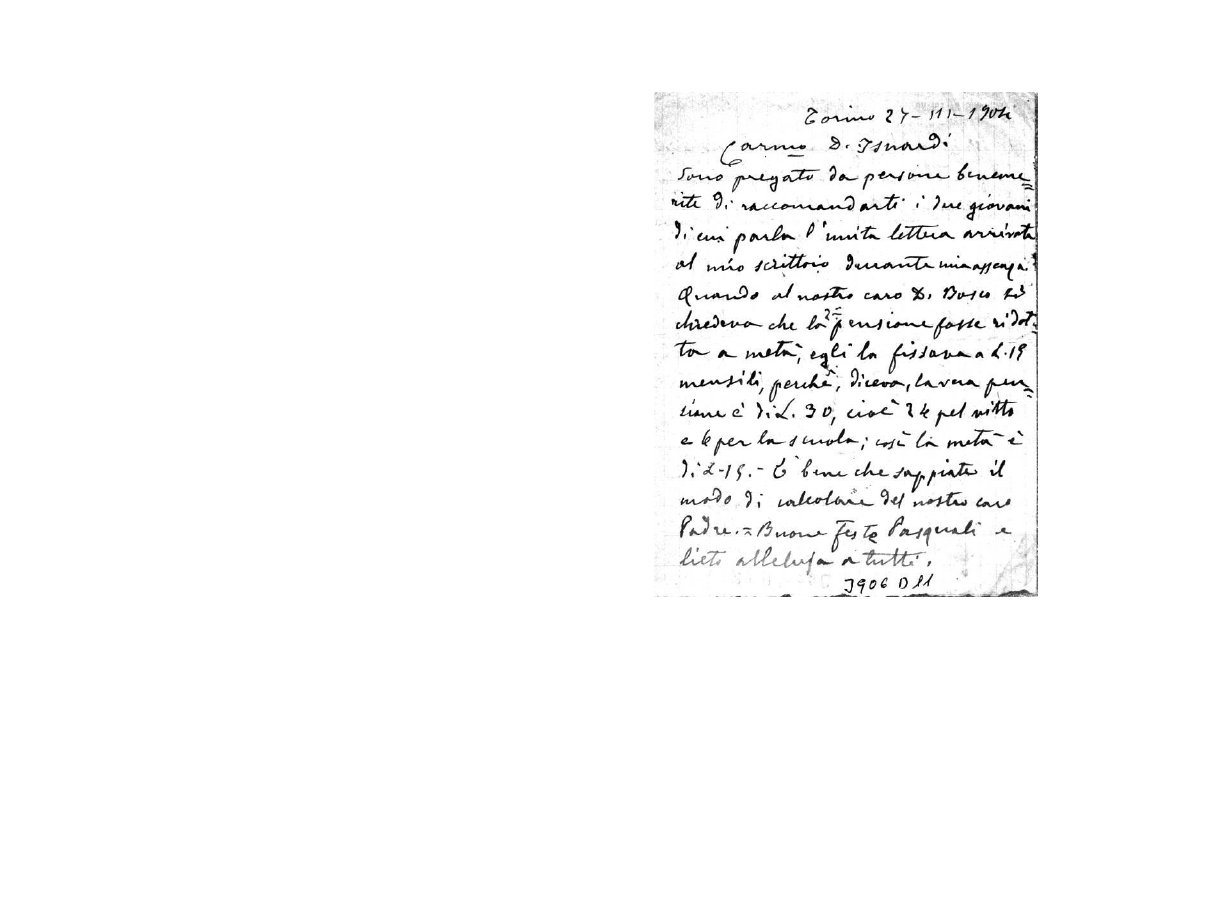 Torino 27-III-1904
Carmo D. Isnardi
Sono pregato da persone beneme=
rite di raccomandarti i due giovani
di cui parla l'unita lettera arrivata
al mio scrittoio durante mia assenza.
Quando al nostro caro D. Bosco si
chiedeva che la 2ª pensione fosse ridot=
ta a metà, egli la fissava a L. 15
mensili, perchè, diceva, la vera pen=
sione è di L. 30, cioè 24 pel vitto
e 6 per la scuola; così la metà è
di L-15.- È bene che sappiate il
modo di calcolare del nostro caro
Padre.= Buone feste Pasquali e
lieto alleluja a tutti.
3906 D11